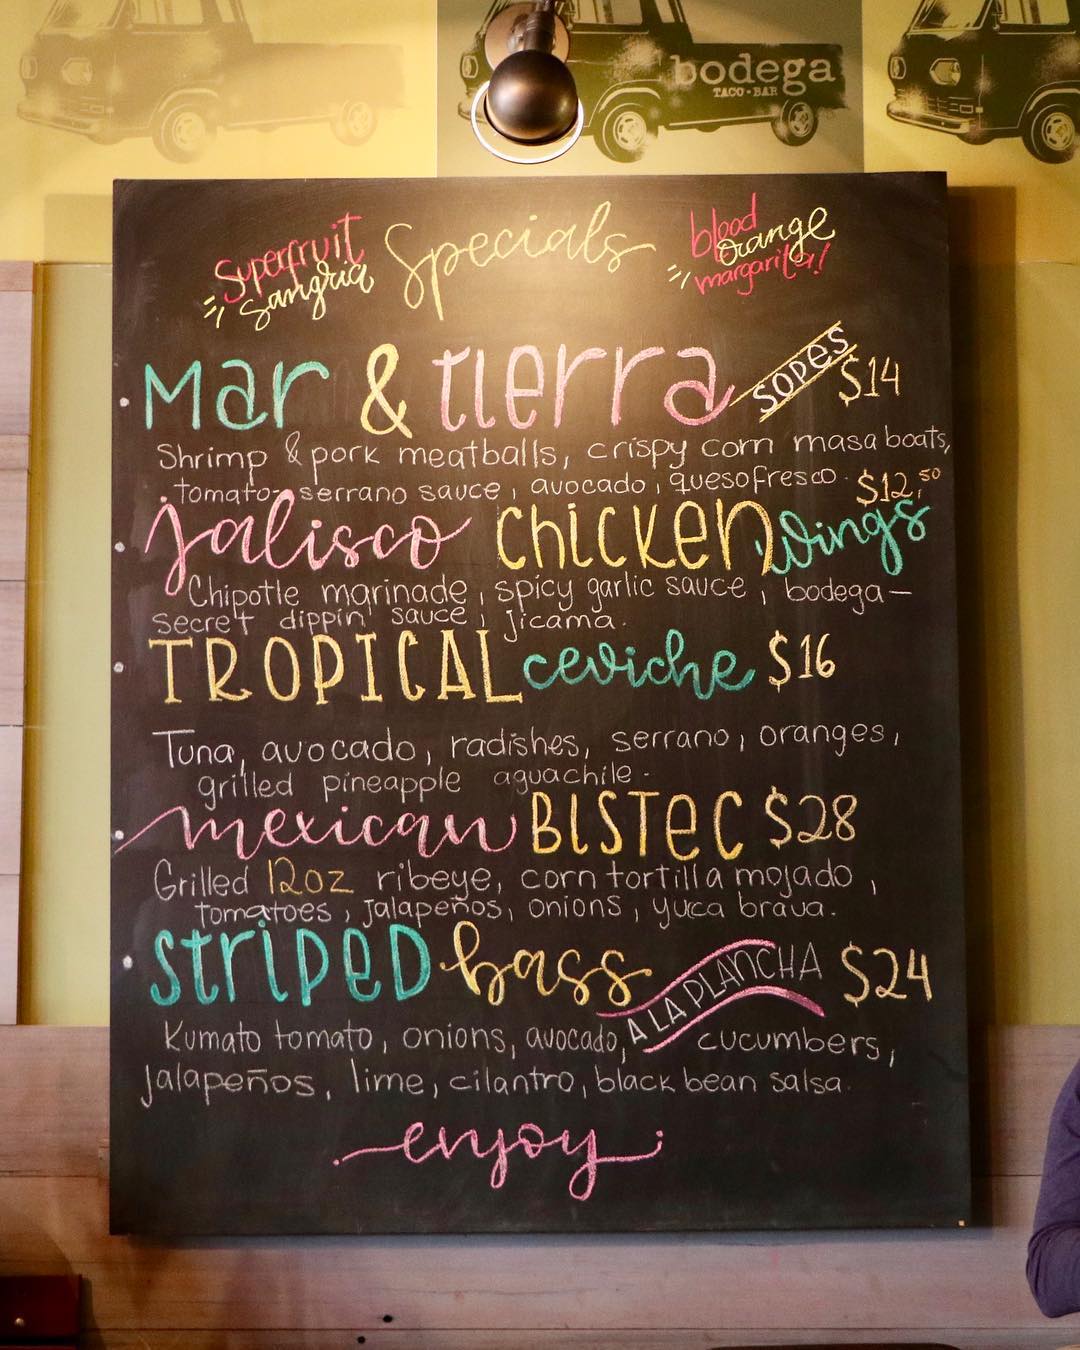 bodega
TACO • BAR
Superfruit
Sangria
Specials
blood
Orange
margarita!
Mar & tierra SOPES $14
Shrimp & pork meatballs, crispy corn masa boats,
tomato-serrano sauce, avocado, queso fresco.
$12.50
jalisco chicken wings
Chipotle marinade, spicy garlic sauce, bodega-
secret dippin' sauce, jicama.
TROPICAL ceviche $16
Tuna, avocado, radishes, serrano, oranges,
grilled pineapple aguachile.
mexican BISTEC $28
Grilled 12oz ribeye, corn tortilla mojado,
tomatoes, jalapeños, onions, yuca brava.
striped bass A LA PLANCHA $24
Kumato tomato, onions, avocado, cucumbers,
jalapeños, lime, cilantro, black bean salsa.
enjoy